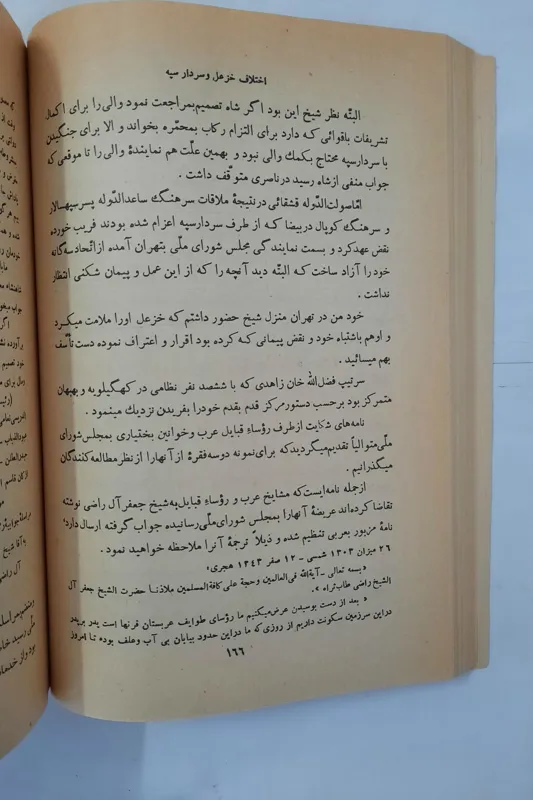 اختلاف خزعل و سردار سپه
البتّه نظر شیخ این بود اگر شاه تصمیم بمراجعت نمود والی را برای اکمال
تشریفات باقوائی که دارد برای التزام رکاب بمحمّره بخواند و الا برای جنگیدن
با سردار سپه محتاج بکمك والی نبود و بهمین علّت هم نمایندهٔ والی را تا موقعی که
جواب منفی از شاه رسید در ناصری متوقّف داشت .
امّا صولت الدّوله قشقائی در نتیجهٔ ملاقات سرهنگ ساعد الدّوله پسر سپهسالار
و سرهنگ کوپال در بیضا که از طرف سردار سپه اعزام شده بودند فریب خورده
نقض عهد کرد و بسمت نمایندگی مجلس شورای ملّی بتهران آمده از اتّحاد سه گانه
خود را آزاد ساخت که البتّه دید آنچه را که از این عمل و پیمان شکنی انتظار
نداشت .
خود من در تهران منزل شیخ حضور داشتم که خزعل اورا ملامت میکرد
و او هم باشتباه خود و نقض پیمانی که کرده بود اقرار و اعتراف نموده دست تأسّف
بهم میسائید .
سرتیپ فضل الله خان زاهدی که با ششصد نفر نظامی در کهگیلویه و بهبهان
متمرکز بود برحسب دستور مرکز قدم بقدم خودرا بفریدن نزدیك مینمود .
نامه های شکایت از طرف رؤساء قبایل عرب و خوانین بختیاری بمجلس شورای
ملّی متوالیاً تقدیم میگردید که برای نمونه دو سه فقره از آنها را از نظر مطالعه کنندگان
میگذرانیم .
از جمله نامه ایست که مشایخ عرب و رؤساء قبایل به شیخ جعفر آل راضی نوشته
تقاضا کرده اند عریضهٔ آنها را بمجلس شورای ملّی رسانیده جواب گرفته ارسال دارد
نامهٔ مزبور بعربی تنظیم شده و ذیلاً ترجمهٔ آنرا ملاحظه خواهید نمود .
۲۶ میزان ۱۳۰۳ شمسی - ۱۲ صفر ۱۳۴۳ هجری
« بسمه تعالی - آیة الله فی العالمین و حجة علی کافة المسلمین ملاذنا حضرت الشیخ جعفر آل
الشیخ راضی طاب ثراه » .
« بعد از دست بوسیدن عرض میکنیم ما رؤسای طوایف عربستان قرنها است پدر بر پدر
در این سرزمین سکونت داریم از روزی که ما در این حدود بیابان بی آب و علف بوده تا امروز
۱۶۶